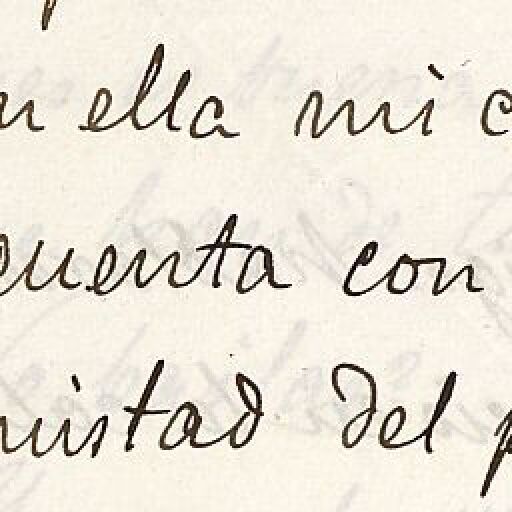 n ella mi c
cuenta con
mistad del p